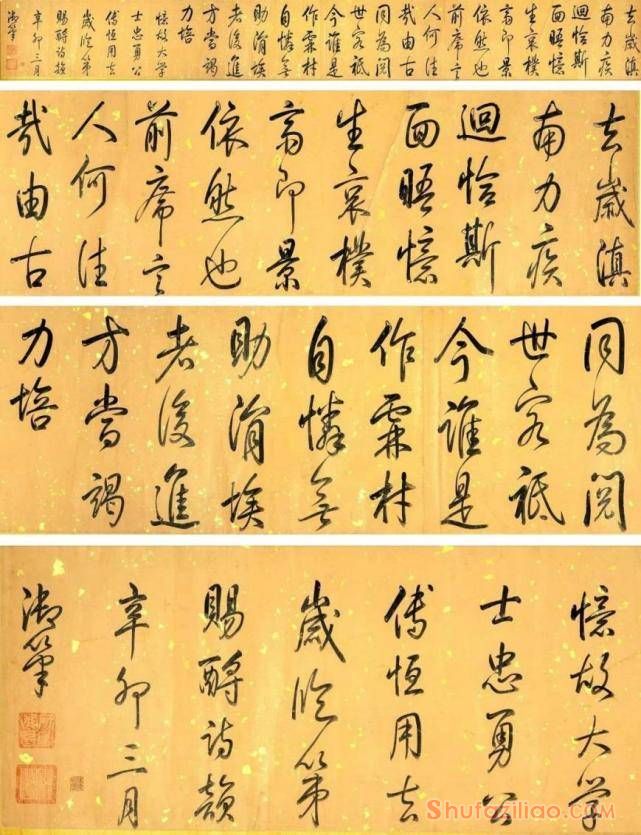 去歲滇
南力疾
迴恰斯
面晤憶
生哀樸
齋即景
依然也
前席言
人何往
哉由古
同為閱
世客祗
今誰是
作霖材
自憐無
助涓埃
老後進
方當竭
力培
憶故大学
士忠勇公
傅恒用去
歲臨第
賜酹詩韻
辛卯三月
御筆
去歲滇
南力疾
迴恰斯
面晤憶
生哀樸
齋即景
依然也
前席言
人何往
哉由古
同為閱
世客祗
今誰是
作霖材
自憐無
助涓埃
老後進
方當竭
力培
憶故大学
士忠勇公
傅恒用去
歲臨第
賜酹詩韻
辛卯三月
御筆
Shufaziliao.com